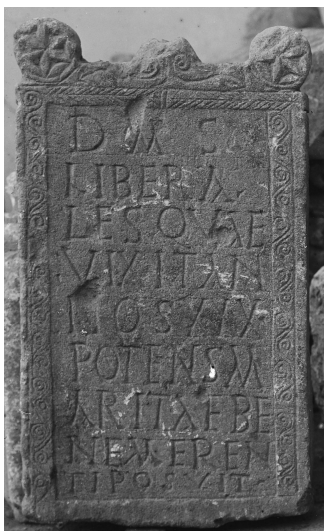 D M S
LIBERA
LES QVAE
VIXIT AN
NOS
POTENS M
ARITAE BE
NEMEREN
TI POSVIT